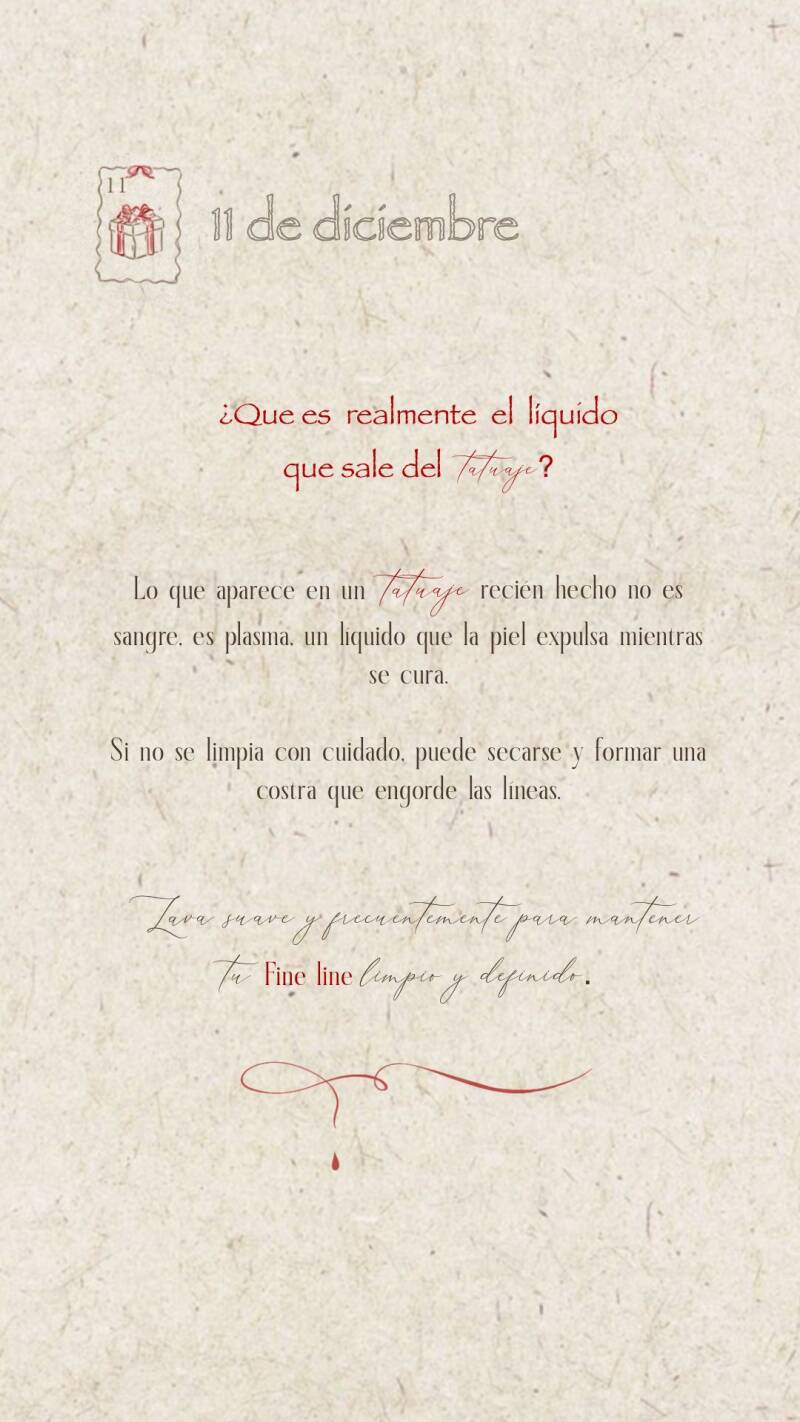 11
11 de diciembre
¿Que es realmente el líquido
que sale del tatuaje?
Lo que aparece en un tatuaje recién hecho no es
sangre, es plasma, un líquido que la piel expulsa mientras
se cura.
Si no se limpia con cuidado, puede secarse y formar una
costra que engorde las líneas.
Lava suave y frecuentemente para mantener
tu Fine line limpio y definido.